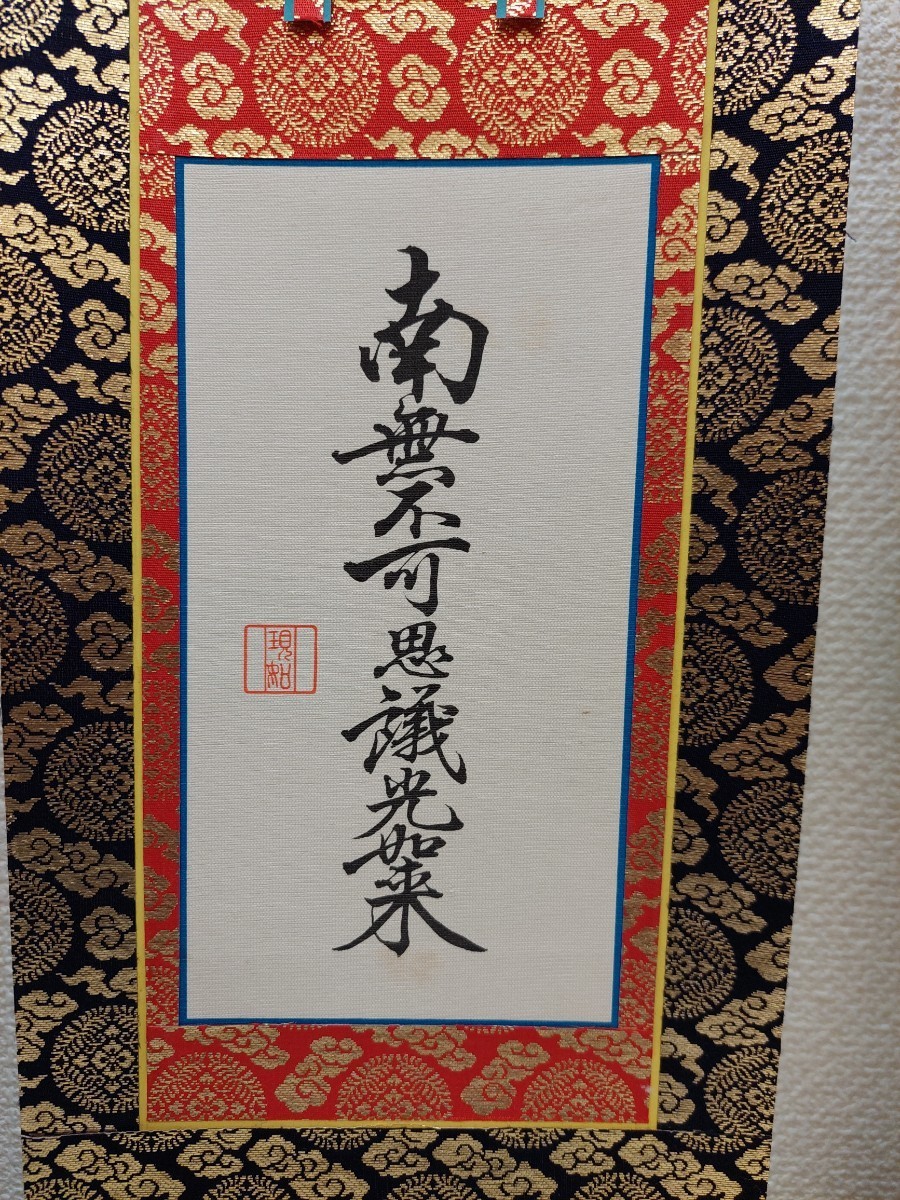 南無不可思議光如来
現如